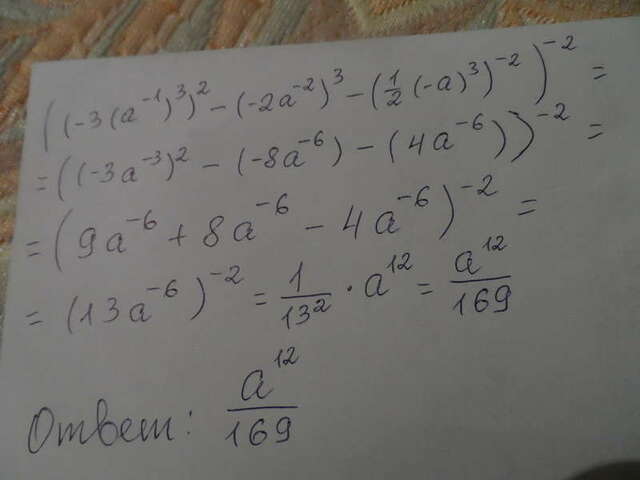 ((-3(a⁻¹)³)² - (-2a⁻²)³ - (½(-a)³)⁻²)⁻² =
= ((-3a⁻³)² - (-8a⁻⁶) - (4a⁻⁶))⁻² =
= (9a⁻⁶ + 8a⁻⁶ - 4a⁻⁶)⁻² =
= (13a⁻⁶)⁻² = 1/13² · a¹² = a¹²/169
Ответ: a¹²/169